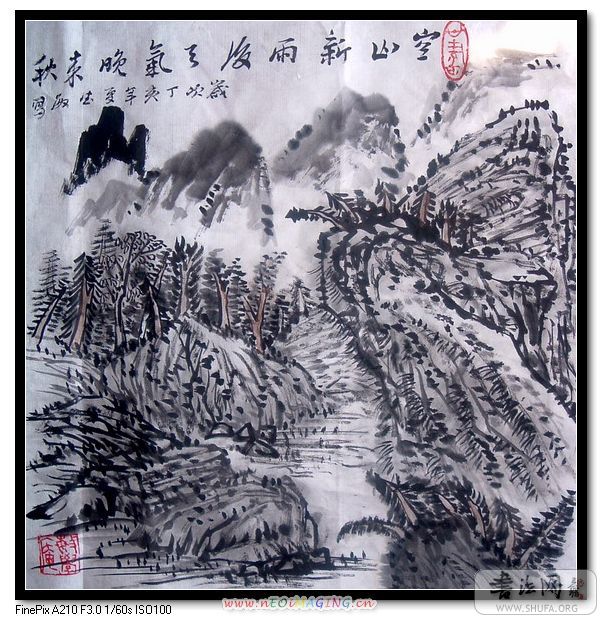 空山新雨後天氣晚来秋
歲次丁亥年夏
書法网
WWW.SHUFA.ORG
FinePix A210 F3.0 1/60s ISO100
www.nEOiMAGiNG.cn